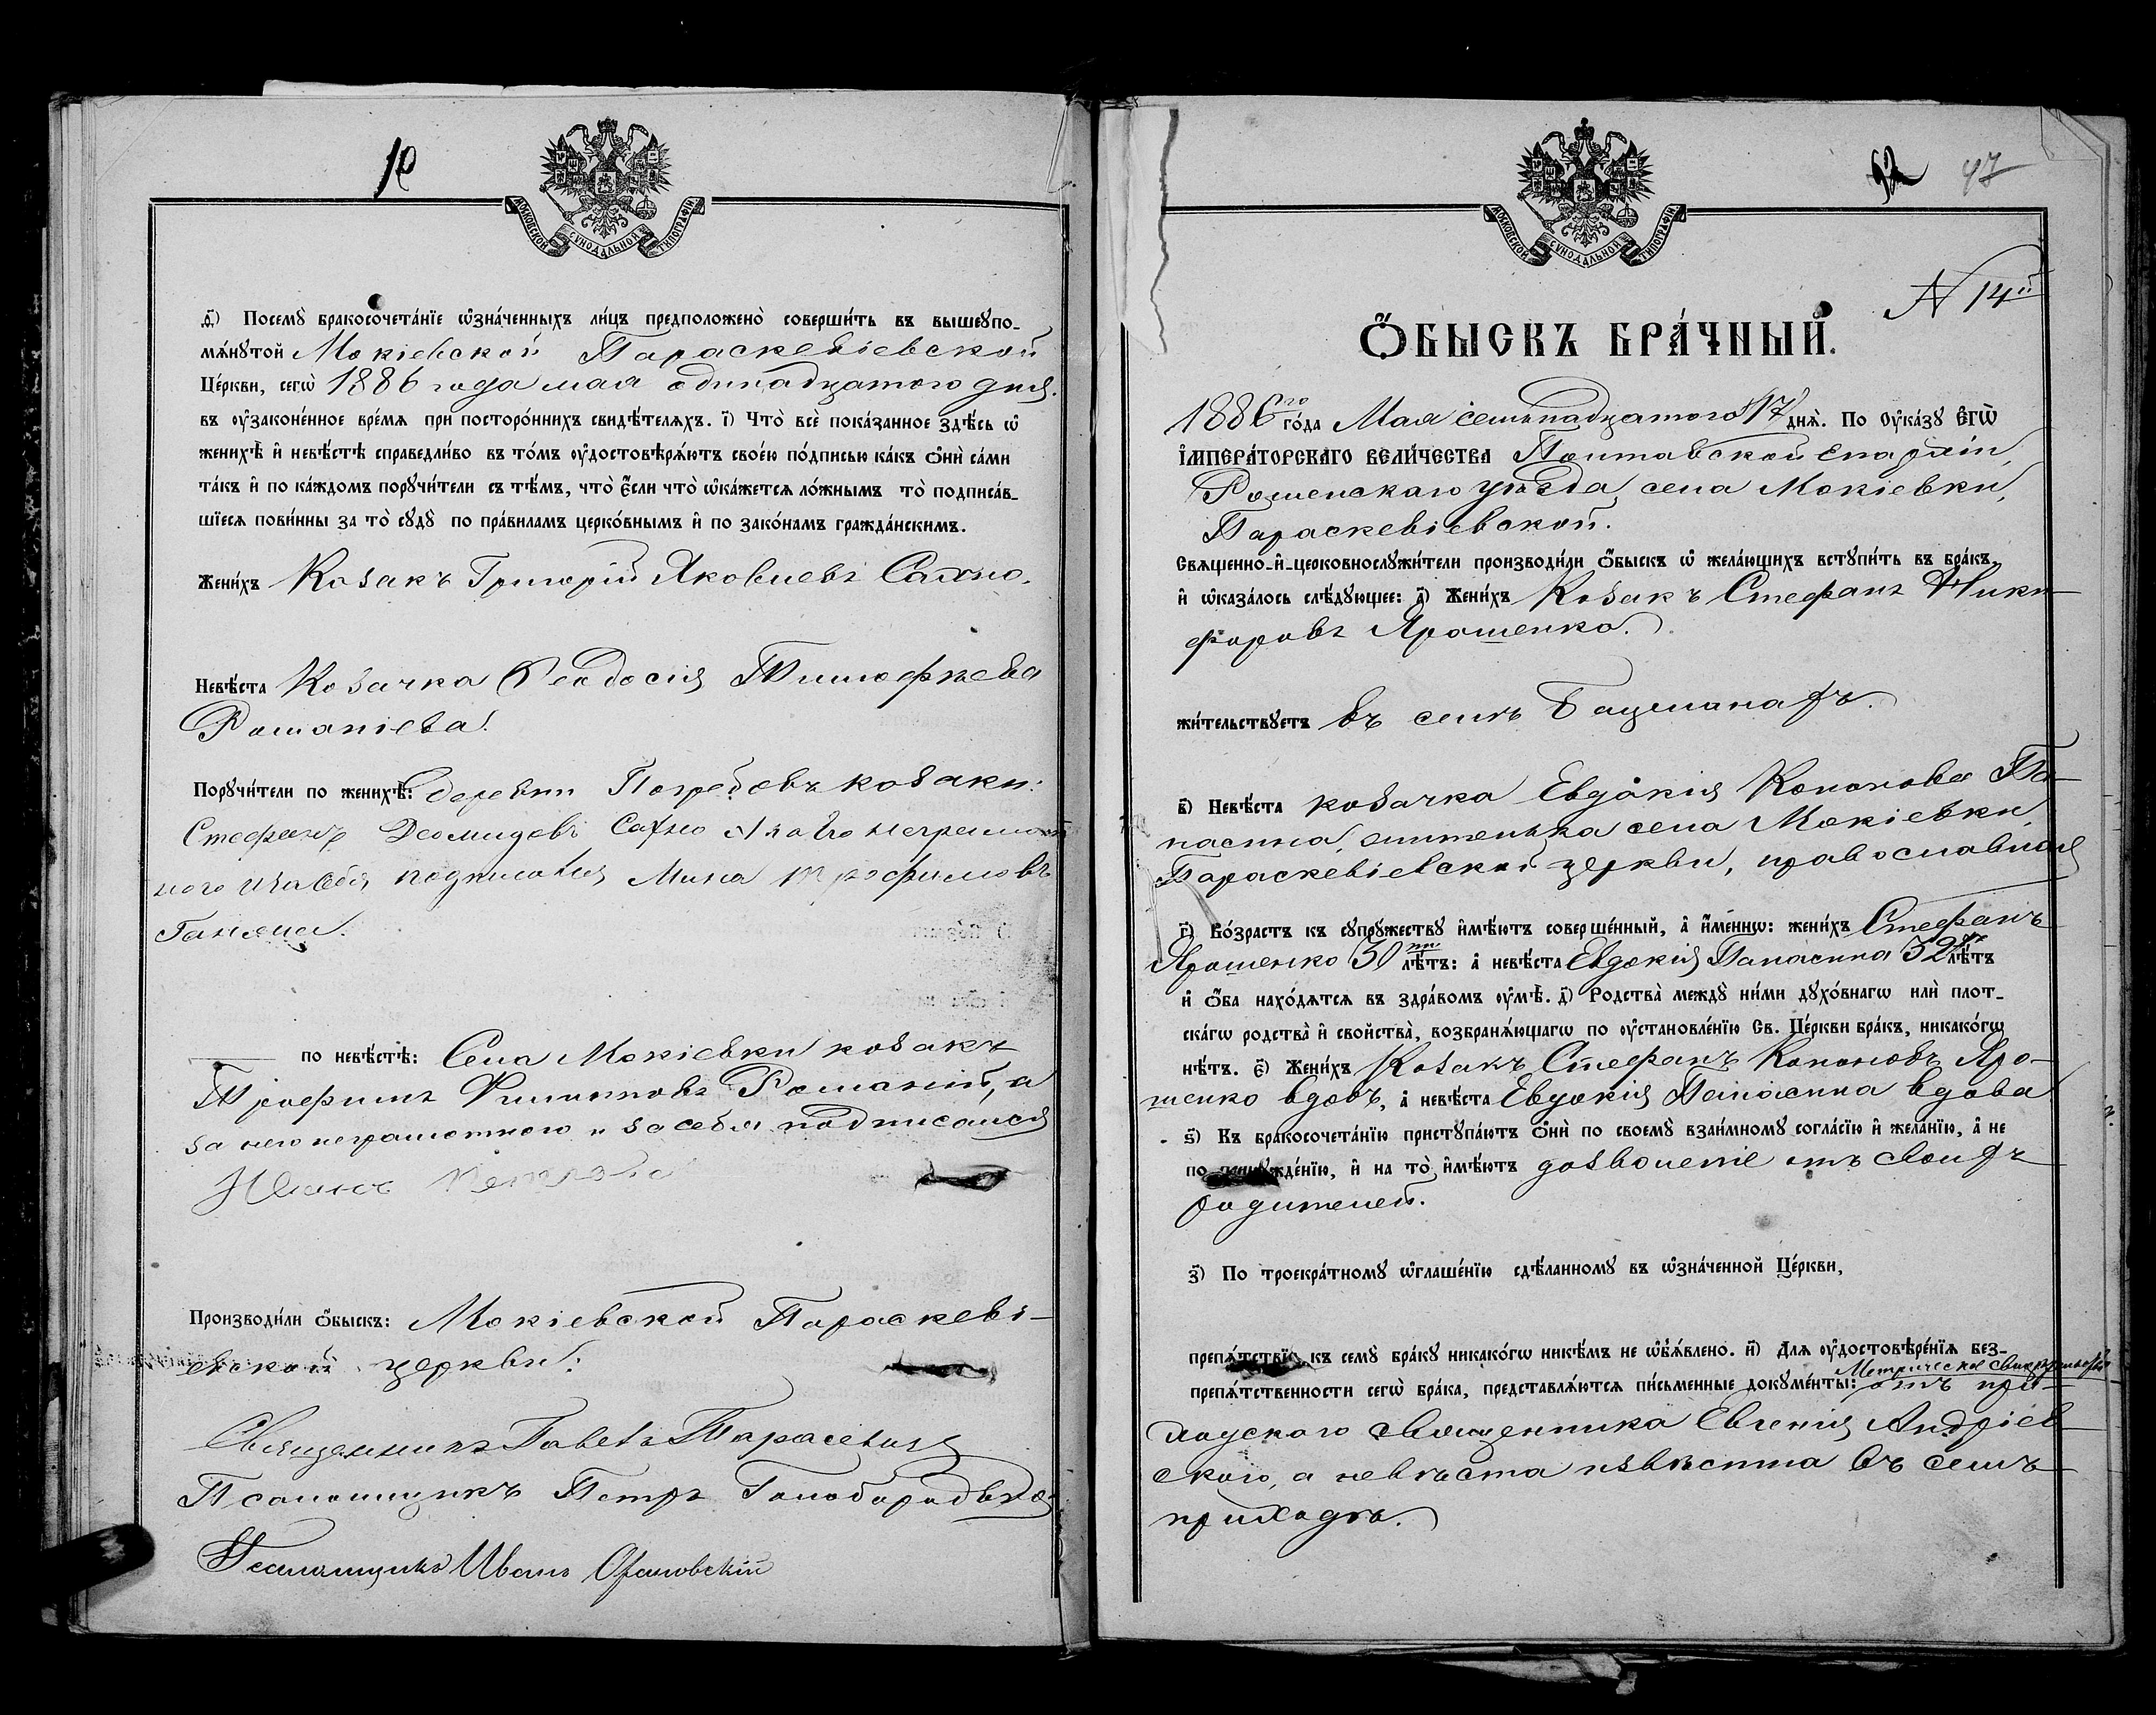 10
МОСКОВСКОЙ СУНОДАЛЬНОЙ ТИПОГРАФІИ
Посемꙋ̀ бракосочета́нїе ѡ҆зна́ченныхъ ли́цъ предположено̀ соверши́ть въ вышеꙋпо-
мѧ́нꙋтой Мокіевской Параскевіевской
Це́ркви, сегѡ̀ 1886 года мая одинадцатого дня.
въ ᲂу҆законе́нное вре́мѧ при посторо́ннихъ свидѣ́телѧхъ. і҃) Что̀ всѐ пока́занное здѣ́сь ѡ҆
женихѣ̀ и҆ невѣ́стѣ справедли́во въ то́мъ ᲂу҆достовѣрѧ́ютъ свое́ю по́дписью ка́къ ѻ҆нѝ са́ми
та́къ и҆ по ка́ждомъ порꙋчи́тели съ тѣ́мъ, что̀ є҆́сли что̀ ѡ҆ка́жетсѧ ло́жнымъ то̀ подписа́в-
шїесѧ пови́нны за то̀ сꙋдꙋ̀ по пра́виламъ церко́внымъ и҆ по зако́намъ гражда́нскимъ.
Жени́хъ Козакъ Григорій Яковлевъ Сахно.
Невѣ́ста Козачка Ѳеодосія Тимофѣева
Романіева.
Порꙋчи́тели по женихѣ̀: Деревни Погребовъ козаки:
Стефанъ Деомидовъ Сахно а за его неграмот
ного и за себя подписался Мина Трофимовъ
по невѣ́стѣ: Села Мокіевки козакъ
Трофимъ Филиповъ Романій, а
за него неграмотного и за себя подписался
Иванъ
Производи́ли ѻ҆́быскъ: Мокіевской Параскеві-
евской церкви:
Священникъ Павелъ Тарасевичъ
Псаломщикъ Петръ Голобородько
Псаломщикъ Иванъ
МОСКОВСКОЙ СУНОДАЛЬНОЙ ТИПОГРАФІИ
47
N 14й
Ѻ҆́БЫСКЪ БРА́ЧНЫЙ.
1886го го́да Мая семьнадцатого 17 днѧ̀. По ᲂу҆ка́зꙋ Є҆ГѠ̀
І҆МПЕРА́ТОРСКАГО ВЕЛИ́ЧЕСТВА Полтавской епархіи,
Роменскаго уѣзда, села Мокіевки,
Параскевіевской.
Свѧще́нно-и҆-церковнослꙋжи́тели производи́ли ѻ҆́быскъ ѡ҆ жела́ющихъ встꙋпи́ть въ бра́къ,
и҆ ѡ҆каза́лось слѣ́дꙋющее: а҃) Жени́хъ Козакъ Стефанъ Ники-
форовъ Ярошенко.
жи́тельствꙋетъ въ селѣ Бацманахъ.
в҃) Невѣ́ста козачка Евдокія Кононова Па-
насина, жителька села Мокіевки,
Параскевіевской церкви, православная
г҃) Во́зрастъ къ сꙋпрꙋ́жествꙋ и҆мѣ́ютъ соверше́нный, а҆ и҆́меннѡ: жени́хъ Стефанъ
Ярошенко 30ти лѣ́тъ: а҆ невѣ́ста Евдокія Панасина 32хъ лѣ́тъ
и҆ ѻ҆́ба нахо́дѧтсѧ въ здра́вомъ ᲂу҆мѣ̀. д҃) Родства̀ междꙋ̀ ни́ми дꙋхо́внагѡ илѝ плот-
ска́гѡ родства̀ и҆ сво́йства̀, возбранѧ́ющагѡ по ᲂу҆становле́нїю Св. Це́ркви бра́къ, никако́гѡ
нѣ́тъ. є҃) Жени́хъ Козакъ Стефанъ Кононовъ Яро-
шенко вдовъ, а҆ невѣ́ста Евдокія Панасина вдова
ѕ҃) Къ бракосочета́нїю пристꙋпа́ютъ ѻ҆нѝ по своемꙋ̀ взаи́мномꙋ согла́сїю и҆ жела́нїю, а҆ не
по принꙋжде́нїю, и҆ на то̀ и҆мѣ́ютъ дозволеніе отъ своихъ
родителей.
з҃) По троекра́тномꙋ ѡ҆глаше́нїю сдѣ́ланномꙋ въ ѡ҆зна́ченной Це́ркви,
препѧ́тствїѧ къ семꙋ̀ бра́кꙋ никако́гѡ никѣ́мъ не ѡ҆б̾ѧ́влено. и҃) Длѧ ᲂу҆достовѣре́нїѧ без-
препѧ́тственности сегѡ̀ бра́ка, представлѧ́ютсѧ пи́сьменные докꙋме́нты: Метрическое свидѣтельство
отъ при-
ходского священника Евгенія Андріев-
ского, а невѣста извѣстна въ семъ
приходѣ.